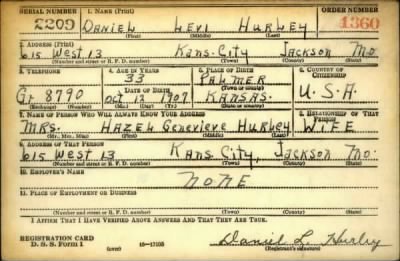 SERIAL NUMBER 1. NAME (Print) ORDER NUMBER
2209 DANIEL LEVI HURLEY 1360
(First) (Middle) (Last)
2. ADDRESS (Print)
615 West 13 Kans. City Jackson Mo
(Number and street or R. F. D. number) (Town) (County) (State)
3. TELEPHONE 4. AGE IN YEARS 5. PLACE OF BIRTH 6. COUNTRY OF CITIZENSHIP
33 PALMER
DATE OF BIRTH (Town or county)
Gr 8790 Oct 13 1907 KANSAS. U. S. A.
(Exchange) (Number) (Mo.) (Day) (Yr.) (State or country)
7. NAME OF PERSON WHO WILL ALWAYS KNOW YOUR ADDRESS 8. RELATIONSHIP OF THAT PERSON
MRS. HAZEL Genevieve Hurley WIFE
(Mr., Mrs., Miss) (First) (Middle) (Last)
9. ADDRESS OF THAT PERSON
615 West 13 Kans City, Jackson Mo.
(Number and street or R. F. D. number) (Town) (County) (State)
10. EMPLOYER'S NAME
NONE
11. PLACE OF EMPLOYMENT OR BUSINESS
(Number and street or R. F. D. number) (Town) (County) (State)
I AFFIRM THAT I HAVE VERIFIED ABOVE ANSWERS AND THAT THEY ARE TRUE.
REGISTRATION CARD
D. S. S. Form 1 (over) 16—17105 Daniel L. Hurley
(Registrant's signature)